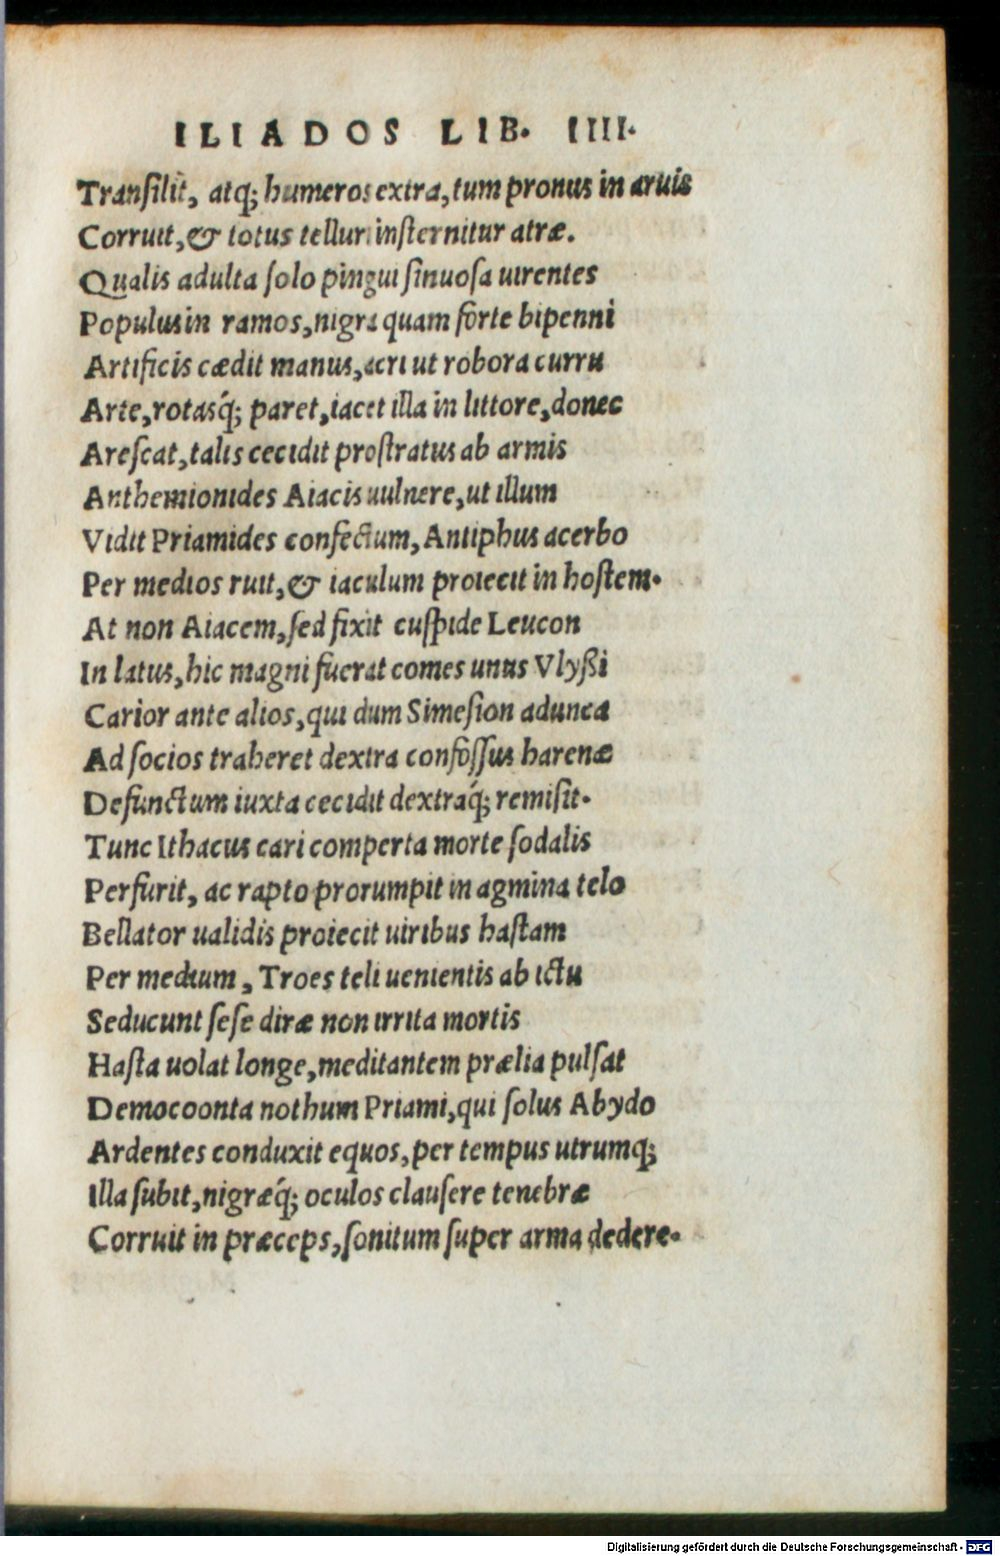 ILIADOS LIB. IIII.
Transilit, atq; humeros extra, tum pronus in aruis
Corruit, & totus telluri insternitur atræ.
Qualis adulta solo pingui sinuosa uirentes
Populus in ramos, nigra quam forte bipenni
Artificis cædit manus, acri ut robora curru
Arte, rotasq́; paret, iacet illa in littore, donec
Arescat, talis cecidit prostratus ab armis
Anthemionides Aiacis uulnere, ut illum
Vidit Priamides confectum, Antiphus acerbo
Per medios ruit, & iaculum proiecit in hostem.
At non Aiacem, sed fixit cuspide Leucon
In latus, hic magni fuerat comes unus Vlyßi
Carior ante alios, qui dum Simesion adunca
Ad socios traheret dextra confossus harenæ
Defunctum iuxta cecidit dextraq́; remisit.
Tunc Ithacus cari comperta morte sodalis
Perfurit, ac rapto prorumpit in agmina telo
Bellator ualidis proiecit uiribus hastam
Per medium, Troes teli uenientis ab ictu
Seducunt sese diræ non irrita mortis
Hasta uolat longe, meditantem prælia pulsat
Democoonta nothum Priami, qui solus Abydo
Ardentes conduxit equos, per tempus utrumq;
Illa subit, nigræq́; oculos clausere tenebræ
Corruit in præceps, sonitum super arma dedere.
Digitalisierung gefördert durch die Deutsche Forschungsgemeinschaft - DFG